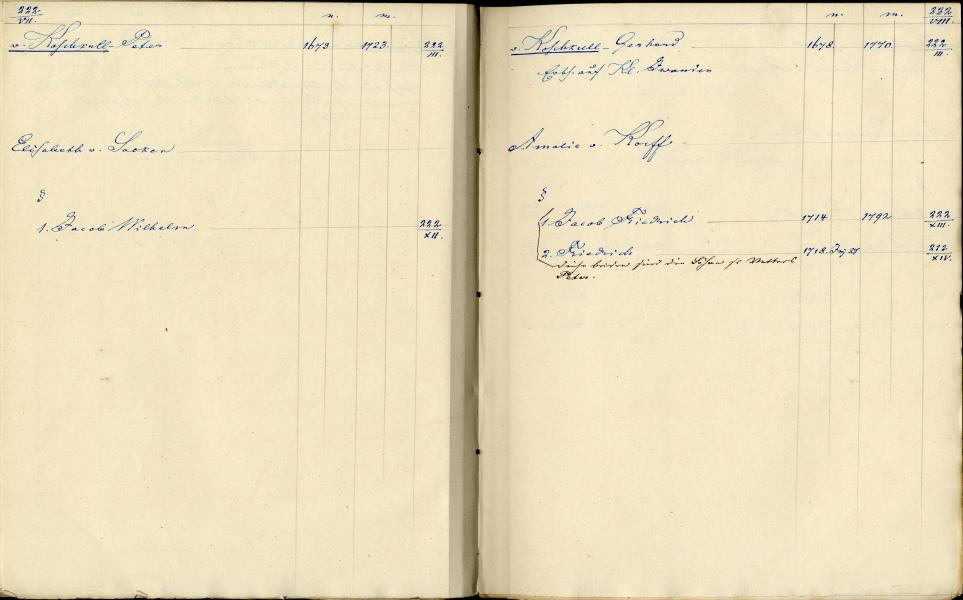 222
VII.
n. m.
v. Koschkull Peter 1673 1723 222
III.
Elisabeth v. Sacken
§
1. Jacob Wilhelm 222
XII.
n. m. 222
VIII.
v. Koschkull Gerhard 1678 1770 222
III.
Erbh. auf Kl.
Amalie v. Korff
§
1. Jacob Friedrich 1714 1792 222
XIII.
2. Friedrich 1718. 222
XIV.
diese beiden sind die Söhne Vetters
Peter.